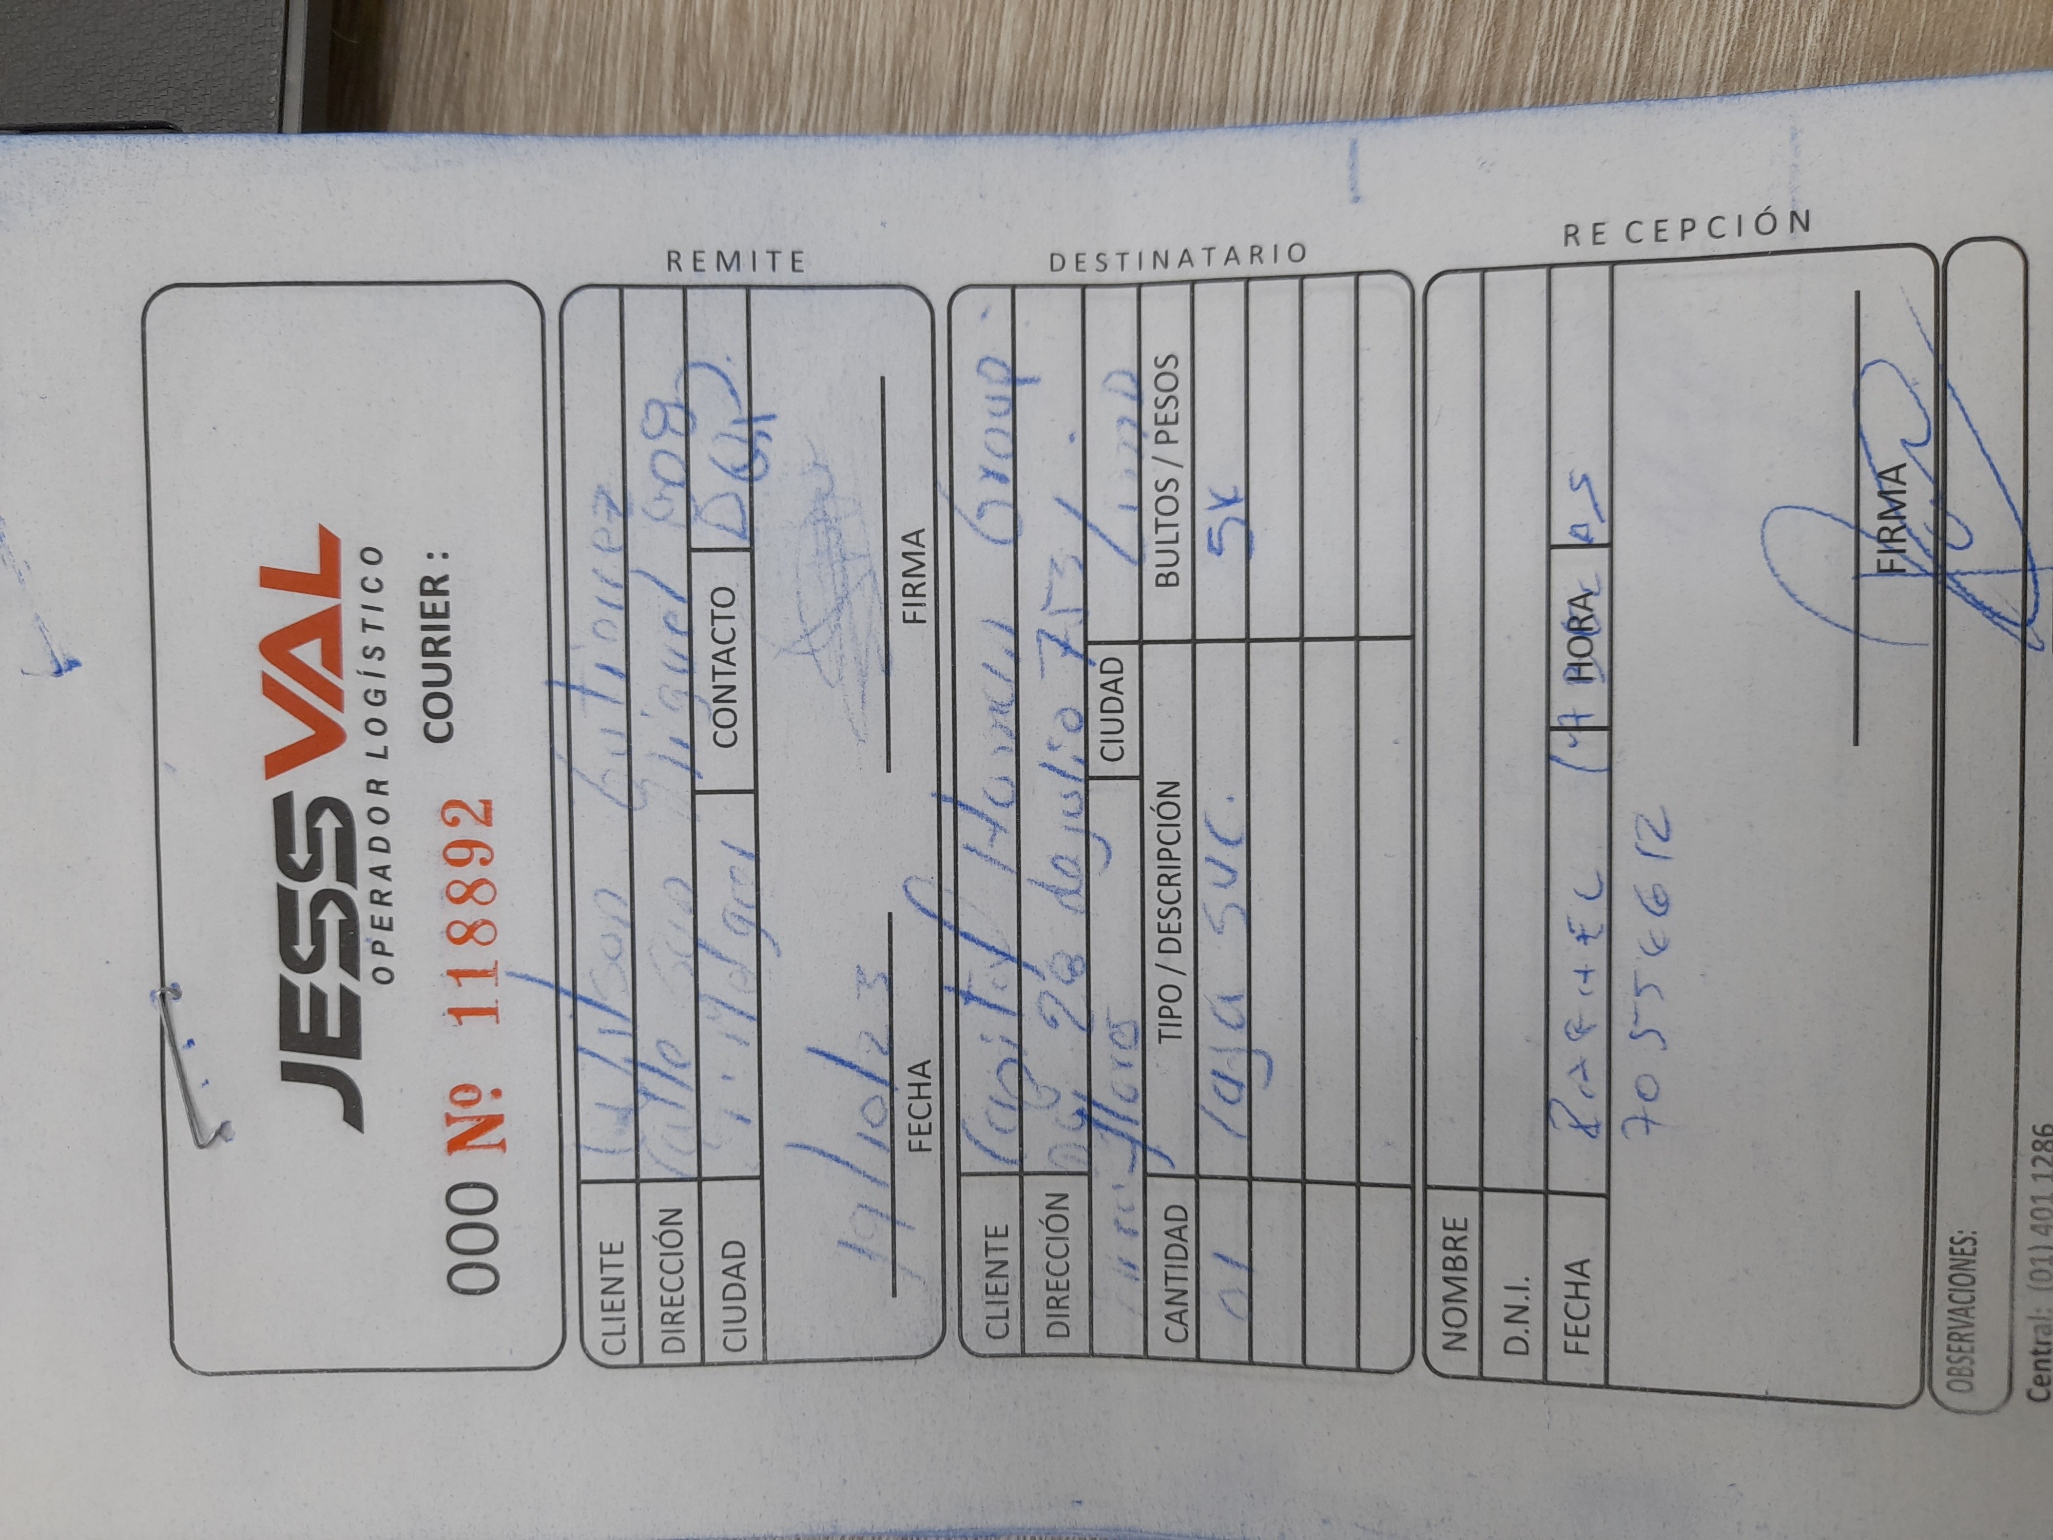 JESSVAL
OPERADOR LOGÍSTICO
000 Nº 118892 COURIER :
CLIENTE Wilson Gutierrez
DIRECCIÓN Calle San Miguel
CIUDAD CONTACTO
19/10/23
FECHA FIRMA
REMITE
CLIENTE Capital Human Group
DIRECCIÓN 28 de julio 753
Miraflores CIUDAD Lima
CANTIDAD TIPO / DESCRIPCIÓN BULTOS / PESOS
01 Caja suc. 5K
DESTINATARIO
NOMBRE
D.N.I.
FECHA RAFAEL HORA
70554612
FIRMA
RECEPCIÓN
OBSERVACIONES:
Central: (01) 401 1286